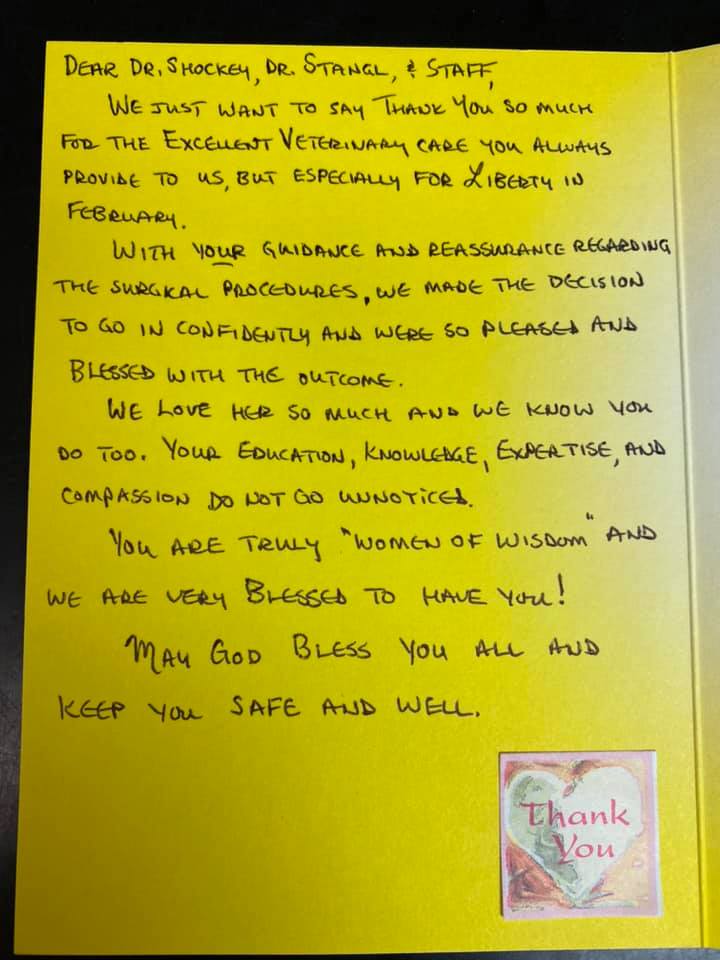 Dear Dr. Shockey, Dr. Stangl, & Staff,
We just want to say Thank You so much
for the Excellent Veterinary care you always
provide to us, but especially for Liberty in
February.
With your guidance and reassurance regarding
the surgical procedures, we made the decision
to go in confidently and were so pleased and
Blessed with the outcome.
We love her so much and we know you
do too. Your Education, Knowledge, Expertise, and
compassion do not go unnoticed.
You are truly "women of wisdom" and
we are very Blessed to have you!
May God Bless you all and
keep you safe and well.
Thank
You